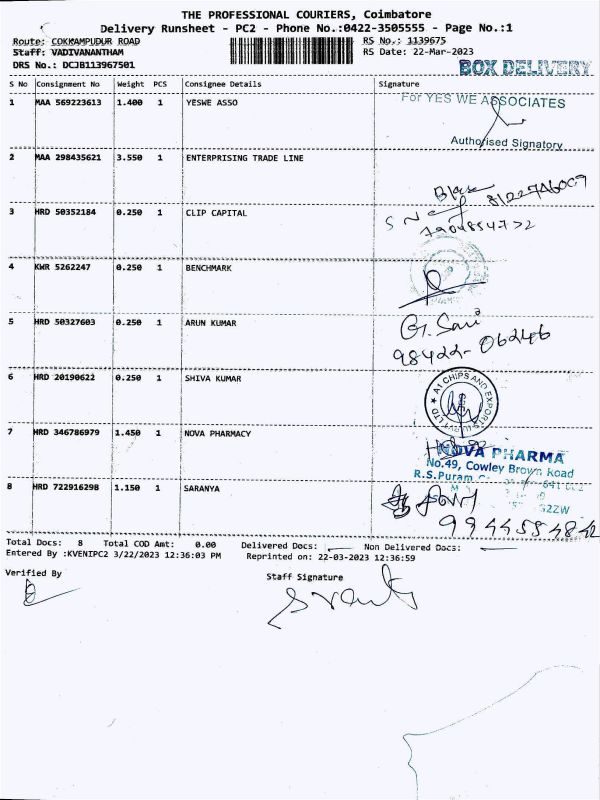 THE PROFESSIONAL COURIERS, Coimbatore
Delivery Runsheet - PC2 - Phone No.:0422-3505555 - Page No.:1
Route: COKKAMPUDUR ROAD RS No.: 1139675
Staff: VADIVANANTHAM RS Date: 22-Mar-2023
DRS No.: DCJB113967501 BOX DELIVERY
S No Consignment No Weight PCS Consignee Details Signature
1 MAA 569223613 1.400 1 YESWE ASSO For YES WE ASSOCIATES
Authorised Signatory
2 MAA 298435621 3.550 1 ENTERPRISING TRADE LINE
3 HRD 50352184 0.250 1 CLIP CAPITAL
4 KWR 5262247 0.250 1 BENCHMARK
5 HRD 50327603 0.250 1 ARUN KUMAR
98422-06246
6 HRD 20190622 0.250 1 SHIVA KUMAR A1 CHIPS AND EXPORTS
7 HRD 346786979 1.450 1 NOVA PHARMACY NOVA PHARMA
No.49, Cowley Brown Road
R.S.Puram
8 HRD 722916298 1.150 1 SARANYA
Total Docs: 8 Total COD Amt: 0.00 Delivered Docs: Non Delivered Docs:
Entered By :KVENIPC2 3/22/2023 12:36:03 PM Reprinted on: 22-03-2023 12:36:59
Verified By
Staff Signature